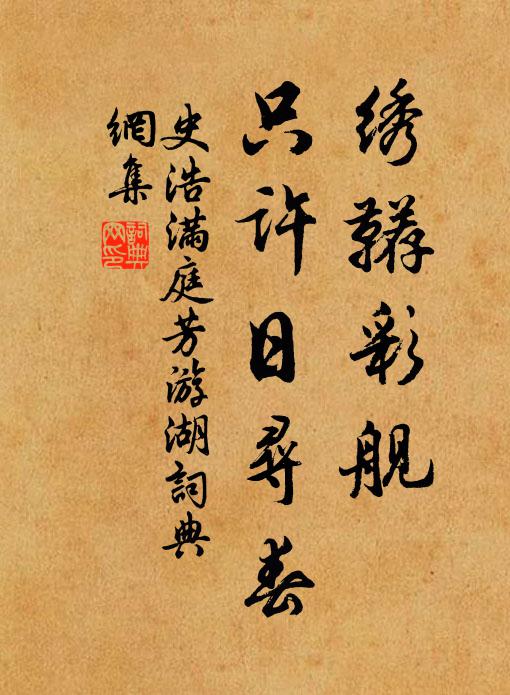 绣鞯彩舰
只许日尋春
史浩满庭芳游湖詞典
網集
詞典
网印